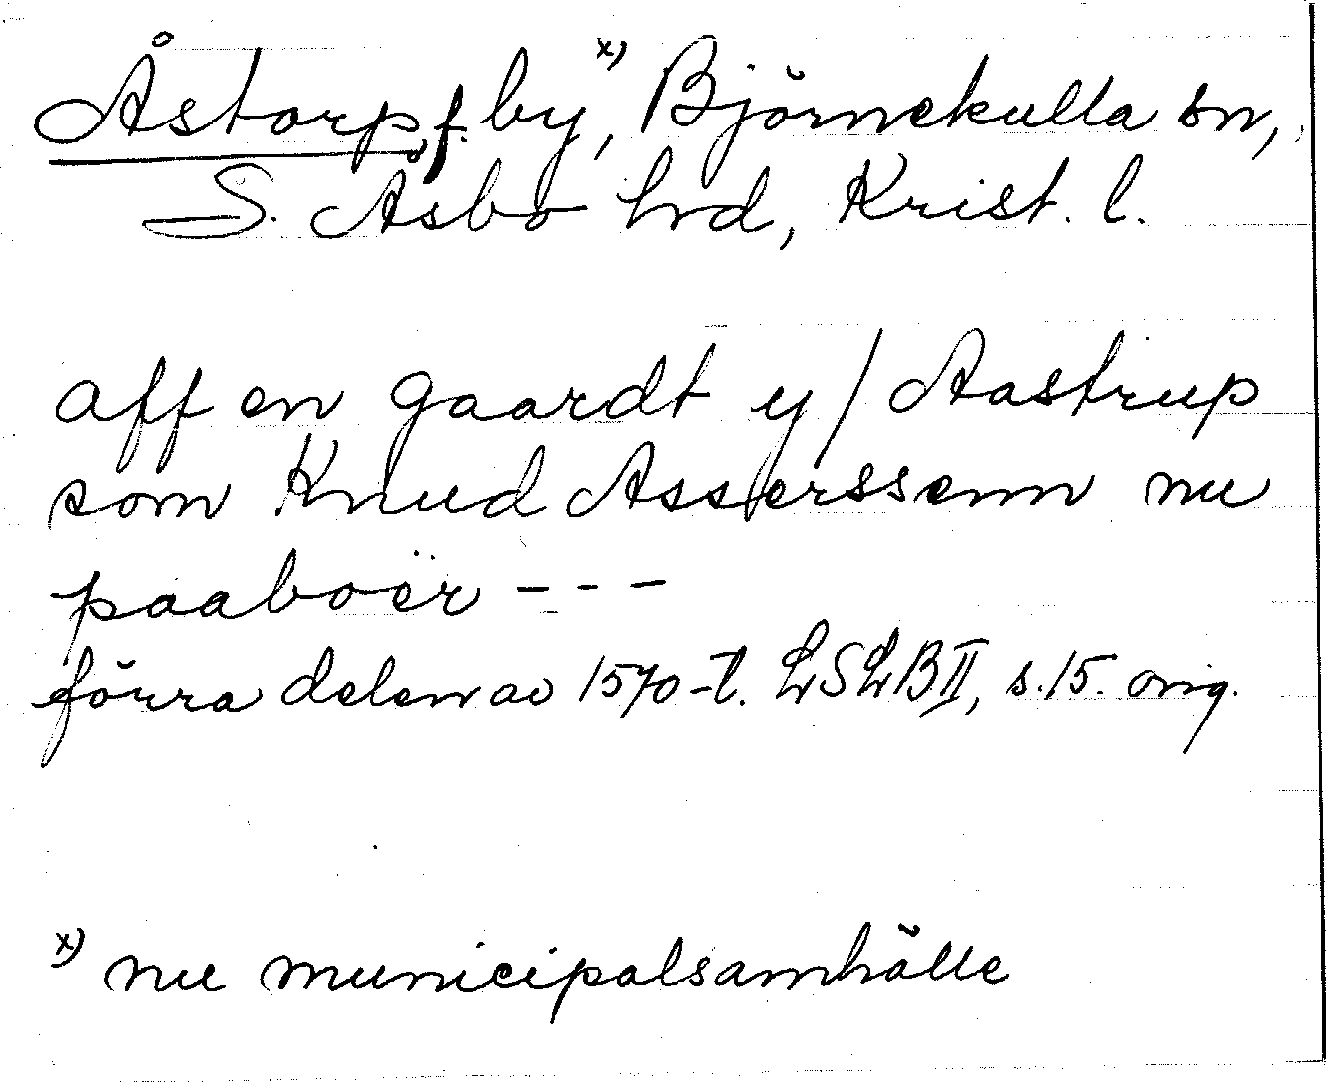 Åstorp, f. by,x) Björnekulla sn,
S. Åsbo hrd, Krist. l.
aff en gaardt y / Aastrup
som Knud Asserssenn nu
paaboër - - -
förra delen av 1570-t. LSLB II, s. 15. orig.
x) nu municipalsamhälle